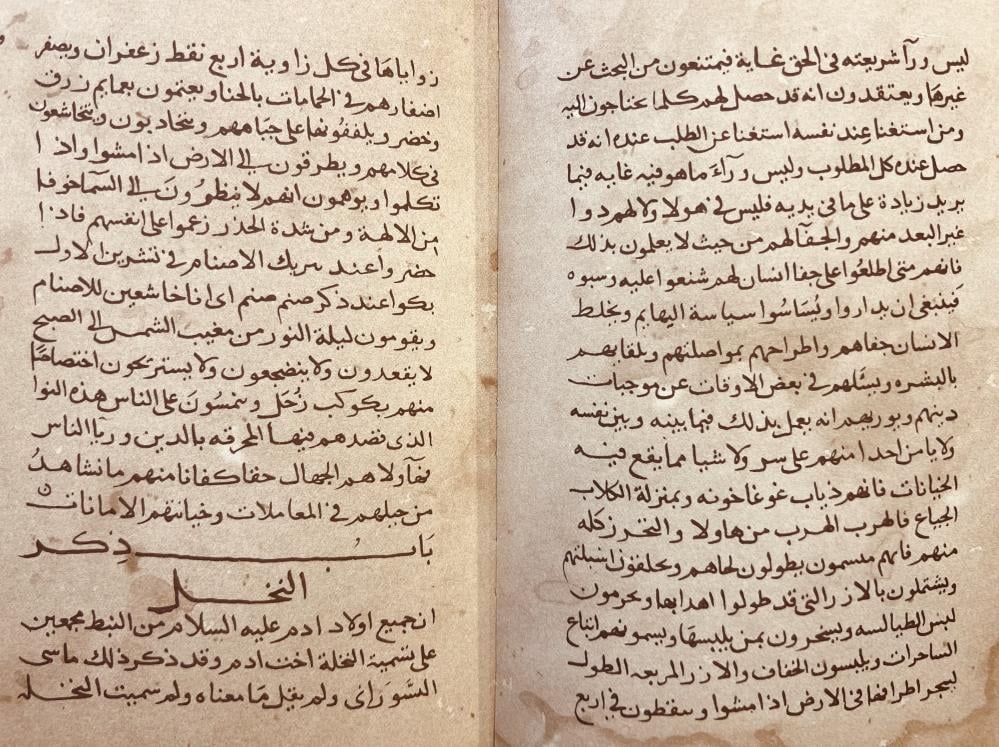 ليس ورآ شريعته في الحق غاية فيمتنعون من البحث عن
غيرها ويعتقدون انه قد حصل لهم كلما يحتاجون اليه
ومن استغنا عند نفسه استغنا عن الطلب عنده انه قد
حصل عنده كل المطلوب وليس ورآء ما هو فيه غايه فيما
يريد زيادة على ما في يديه فليس في هولا ولا لهم دوا
غير البعد منهم والجفا لهم من حيث لا يعلمون بذلك
فانهم متى اطلعوا على جفا انسان لهم شنعوا عليه وسبوه
فينبغي ان يداروا ويُسَاسُوا سياسة البهايم ويخلط
الانسان جفاهم واطراحهم بمواصلتهم ويلقاهم
بالبشره ويسئلهم في بعض الاوقات عن موجبات
دينهم ويوريهم انه يعمل بذلك فيما بينه وبين نفسه
ولا يامن احدا منهم على سر ولا شيا مما يقع فيه
الخيانات فانهم ذياب غوغا خونه وبمنزلة الكلاب
الجياع فالهرب الهرب من هاولا والتحرز كله
منهم فانهم متسمون يطولون لحاهم ويحلقون اسبلتهم
ويشتملون بالازر التي قد طولوا اهدابها ويحرمون
لبس الطيالسه ويسخرون بمن يلبسها ويسمونهم اتباع
الساحرات ويلبسون الخفاف والازر المربعه الطول
ليجر اطرافها في الارض اذا مشوا وينقطون في اربع
زواياها في كل زاوية اربع نقط زعفران ويصفر
اضفارهم في الحمامات بالحنا ويعتمون بعمايم زرق
وخضر ويلففونها على جباههم ويتحادبون ويتخاشعون
في كلامهم ويطرقون الي الارض اذا مشوا واذا
تكلموا ويوهمون انهم لا ينظرُونَ الي السمآ خوفا
من الالهة ومن شدة الحذر زعموا على انفسهم فاذا
حضروا عند الاصنام في تشرين الاول
بكوا عند ذكر صنم صنم اى انا خاشعين للاصنام
ويقومون ليلة النور من مغيب الشمس الي الصبح
لا يقعدون ولا ينضجعون ولا يستريحون اختصاصًا
منهم بكوكب زُحَل وينمسُونَ على الناس هذه النوا
الذى قصدهم فيها المخرقه بالدين وريآ الناس
فهآولا هم الجهال حقا كفانا منهم ما نشاهدُ
من حيلهم في المعاملات وخيانتهم الامانات
بَابُ ذِكر
النخل
ان جميع اولاد ادم عليه السلام من النبط مجمعين
على تسمية النخلة اخت ادم وقد ذكر ذلك ماسى
السُوراى ولم يقل مَا معناه ولم سميت النخله